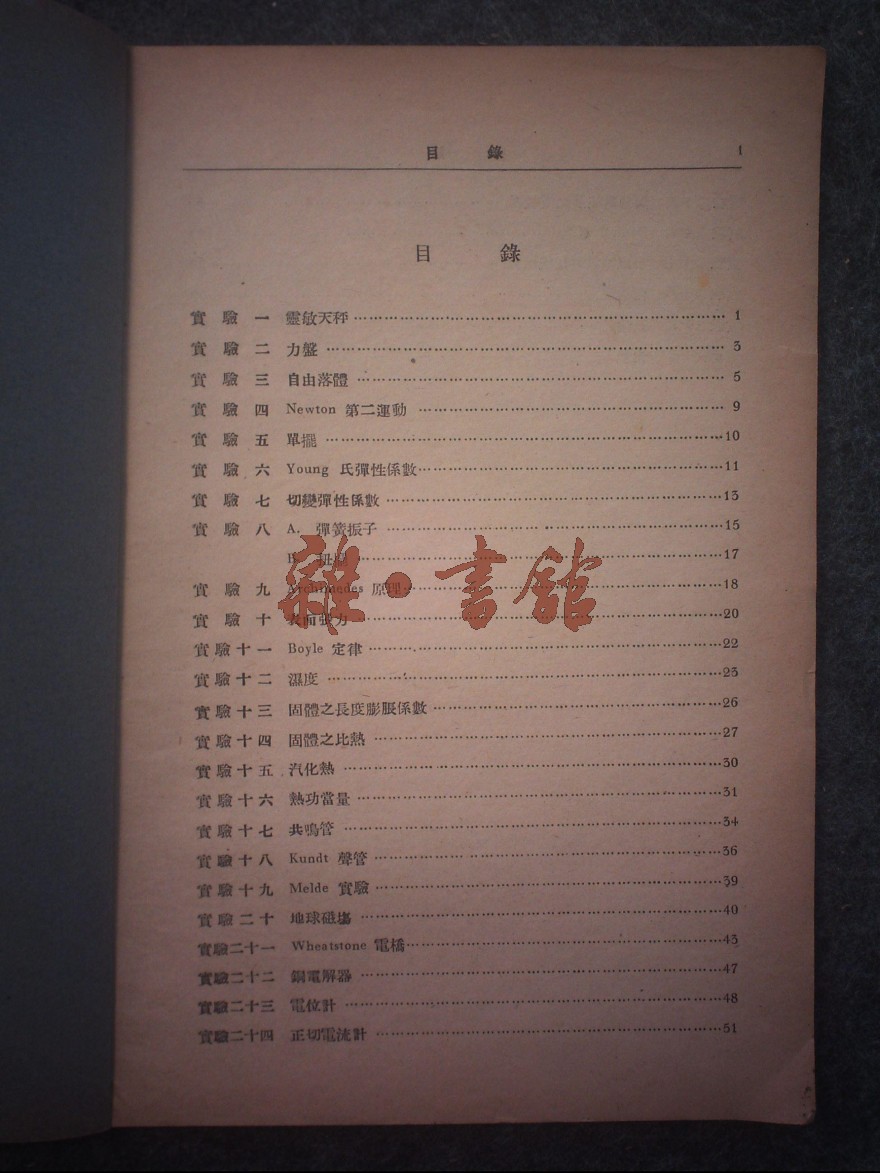 目 錄 1
目 錄
實驗一 靈敏天秤 1
實驗二 力盤 3
實驗三 自由落體 5
實驗四 Newton 第二運動 9
實驗五 單擺 10
實驗六 Young 氏彈性係數 11
實驗七 切變彈性係數 13
實驗八 A. 彈簧振子 15
B. 17
實驗九 Archimedes 原理 18
實驗十 表面張力 20
實驗十一 Boyle 定律 22
實驗十二 濕度 23
實驗十三 固體之長度膨脹係數 26
實驗十四 固體之比熱 27
實驗十五 汽化熱 30
實驗十六 熱功當量 31
實驗十七 共鳴管 34
實驗十八 Kundt 聲管 36
實驗十九 Melde 實驗 39
實驗二十 地球磁場 40
實驗二十一 Wheatstone 電橋 43
實驗二十二 銅電解器 47
實驗二十三 電位計 48
實驗二十四 正切電流計 51
雜·書館